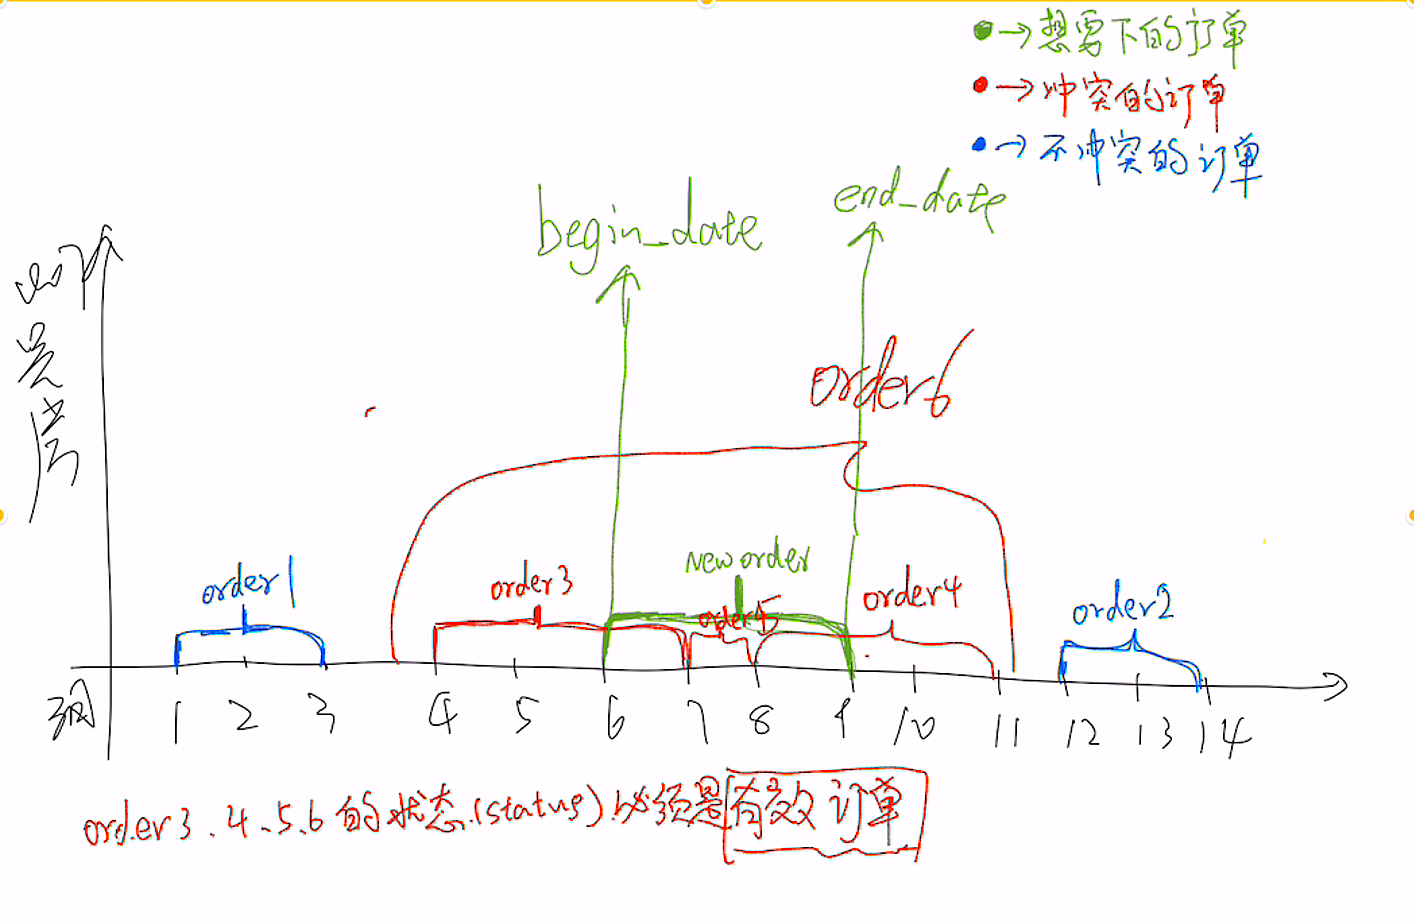 →想要下的订单
→冲突的订单
→不冲突的订单
begin_date
end_date
order6
order1
order3
New order
order5
order4
order2
1 2 3 4 5 6 7 8 9 10 11 12 13 14
order 3.4.5.6的状态(status)必须是有效订单